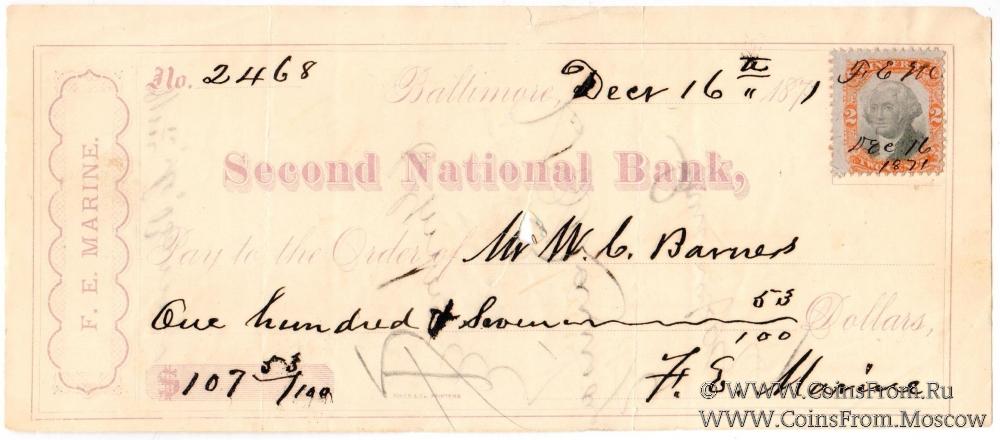 No. 2468
Baltimore, Decr 16th 1871
Second National Bank,
Pay to the Order of Mr W. C. Barnes
One hundred & Seven 53/100 Dollars,
$107 53/100
F. E. Marine
F. E. MARINE.
F. E. M.
Dec 16
1871
2 2
WWW.CoinsFrom.Ru
WWW.CoinsFrom.Moscow